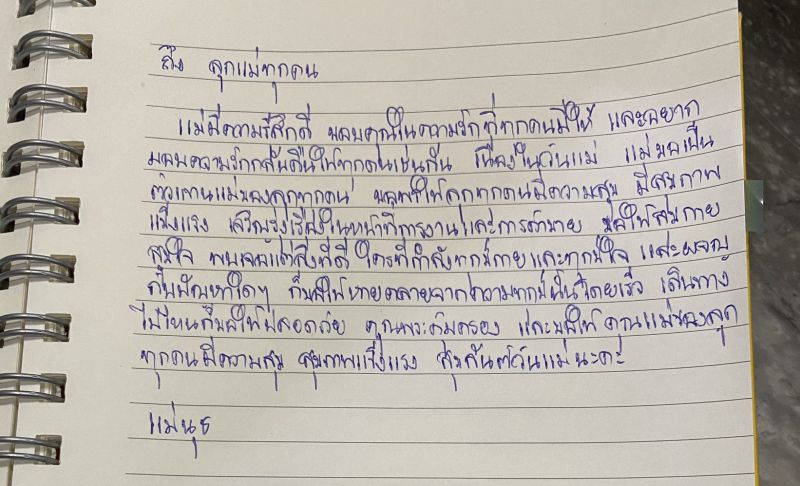 ถึง ลูกแม่ทุกคน
แม่มีความรู้สึกดี ขอบคุณในความรักที่ทุกคนมีให้ และอยาก
มอบความรักกลับคืนให้ทุกคนเช่นกัน เนื่องในวันแม่ แม่ขอเป็น
ตัวแทนแม่ของลูกทุกคน ขอพรให้ลูกทุกคนมีความสุข มีสุขภาพ
แข็งแรง เจริญรุ่งเรืองในหน้าที่การงานและการค้าขาย ขอให้สุขกาย
สุขใจ พบเจอแต่สิ่งที่ดี ใครที่กำลังทุกข์กายและทุกข์ใจ และผจญ
กับปัญหาใดๆ ก็ขอให้หายคลายจากความทุกข์นั้นโดยเร็ว เดินทาง
ไปไหนก็ขอให้ปลอดภัย คุณพระคุ้มครอง และขอให้คุณแม่ของลูก
ทุกคนมีความสุข สุขภาพแข็งแรง สุขสันต์วันแม่นะคะ
แม่นุช